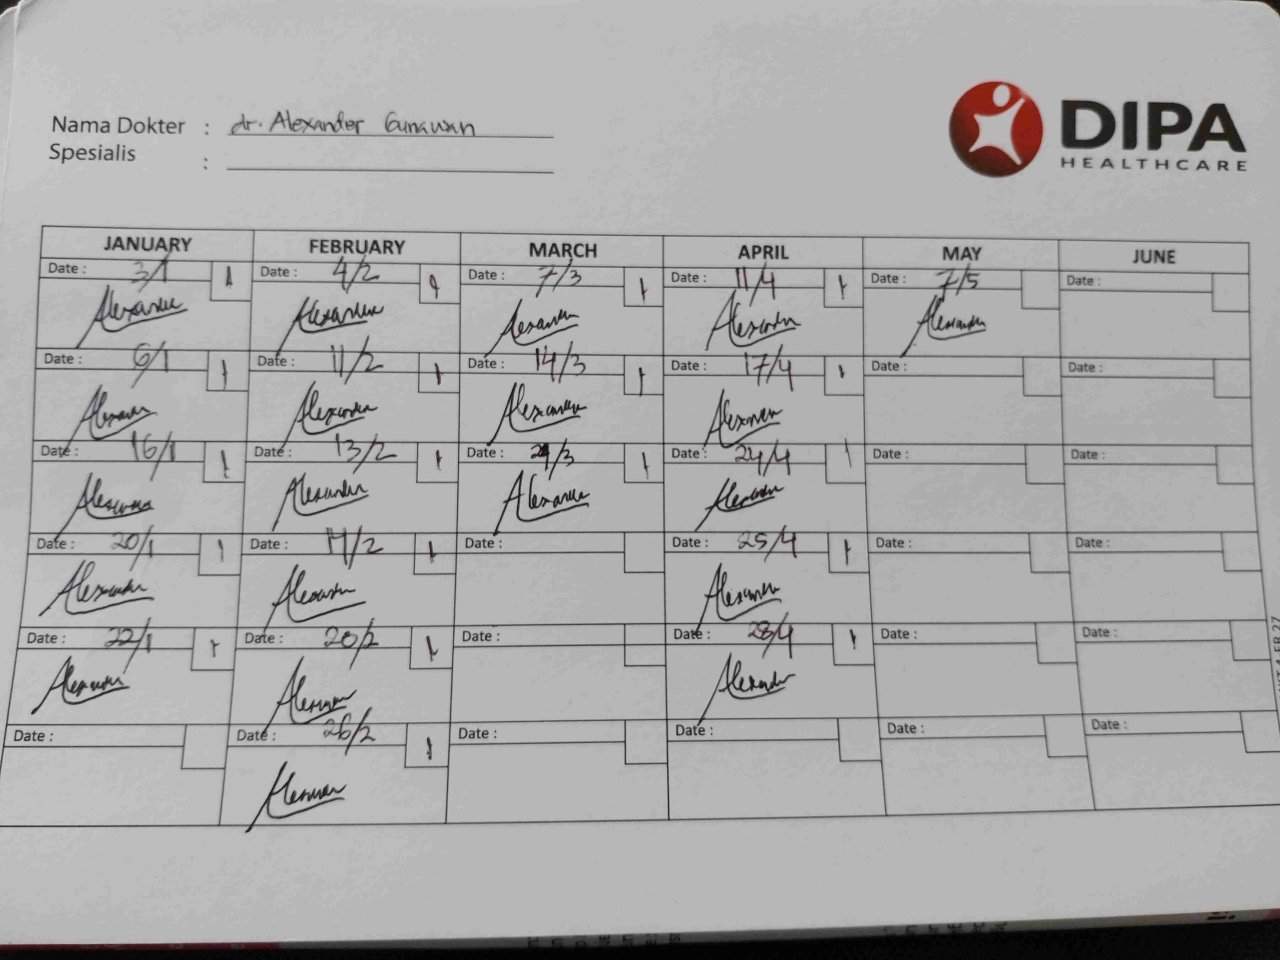 Nama Dokter : dr. Alexander Gunawan
Spesialis :
DIPA
HEALTHCARE
JANUARY FEBRUARY MARCH APRIL MAY JUNE
Date : 3/1 Date : 4/2 Date : 7/3 Date : 11/4 Date : 7/5 Date :
Alexander Alexander Alexander Alexander Alexander
Date : 6/1 Date : 11/2 Date : 14/3 Date : 17/4 Date : Date :
Alexander Alexander Alexander Alexander
Date : 16/1 Date : 13/2 Date : /3 Date : 24/4 Date : Date :
Alexander Alexander Alexander Alexander
Date : 20/1 Date : 14/2 Date : Date : 25/4 Date : Date :
Alexander Alexander Alexander
Date : 22/1 Date : 20/2 Date : Date : 28/4 Date : Date :
Alexander Alexander Alexander
Date : Date : 26/2 Date : Date : Date : Date :
Alexander